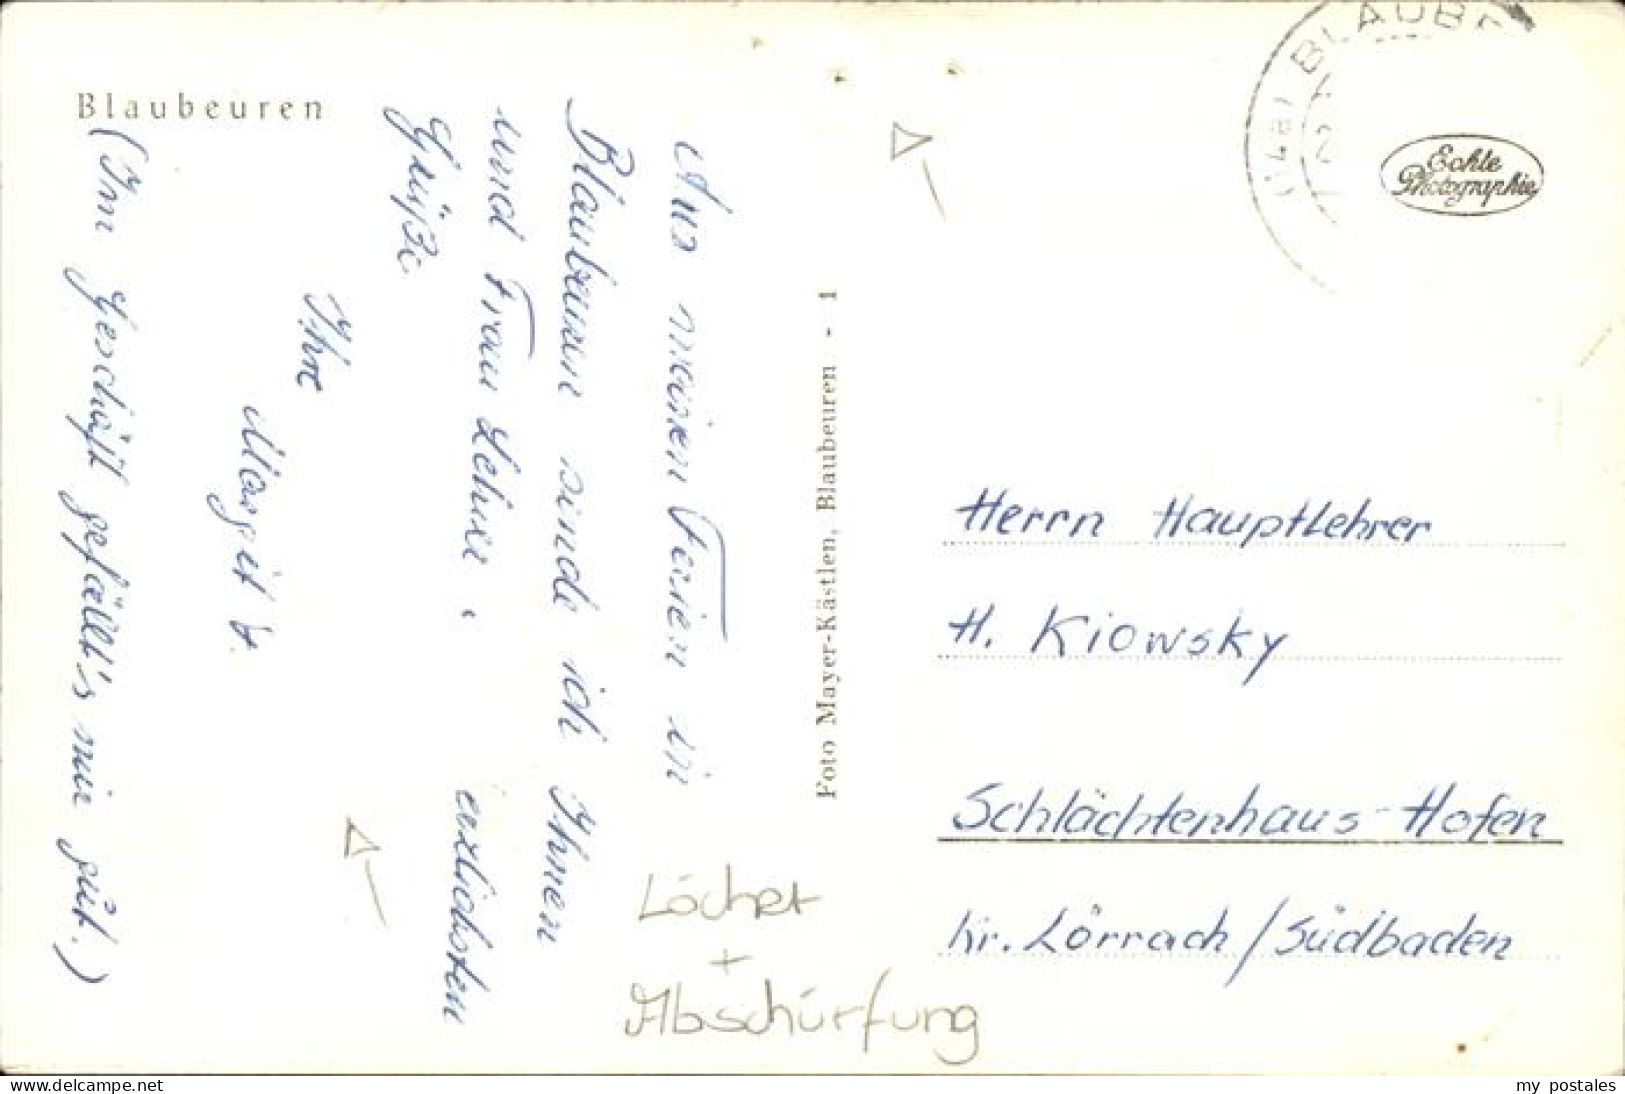 Blaubeuren
Aus meinen Ferien in
Blaubeuren sende ich Ihnen
und Frau Lehrer
herzlichsten
Grüße.
Ihre
Margit
(Im Geschäft gefällt's mir gut.)
Foto Mayer-Kästlen, Blaubeuren - 1
(14a) BLAUBE
Echte
Photographie
Herrn Hauptlehrer
H. Kiowsky
Schlächtenhaus-Hofen
Kr. Lörrach/Südbaden
Löcher
+
Abschürfung
www.ansichtskartenversand.com
my postales